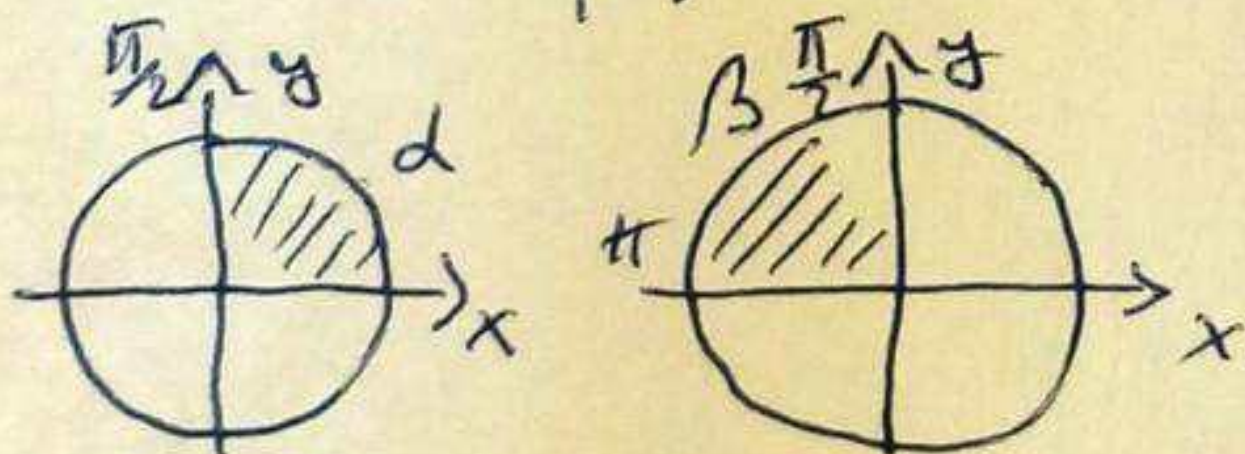 π/2 y α β π/2 y
π
x x